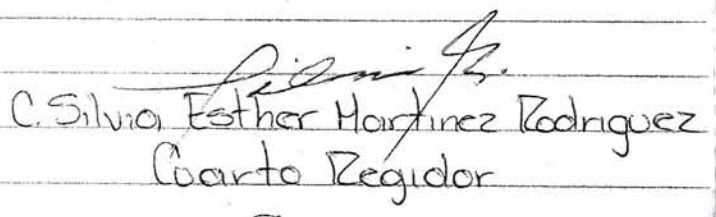 C. Silvia Esther Martinez Rodriguez
Cuarto Regidor